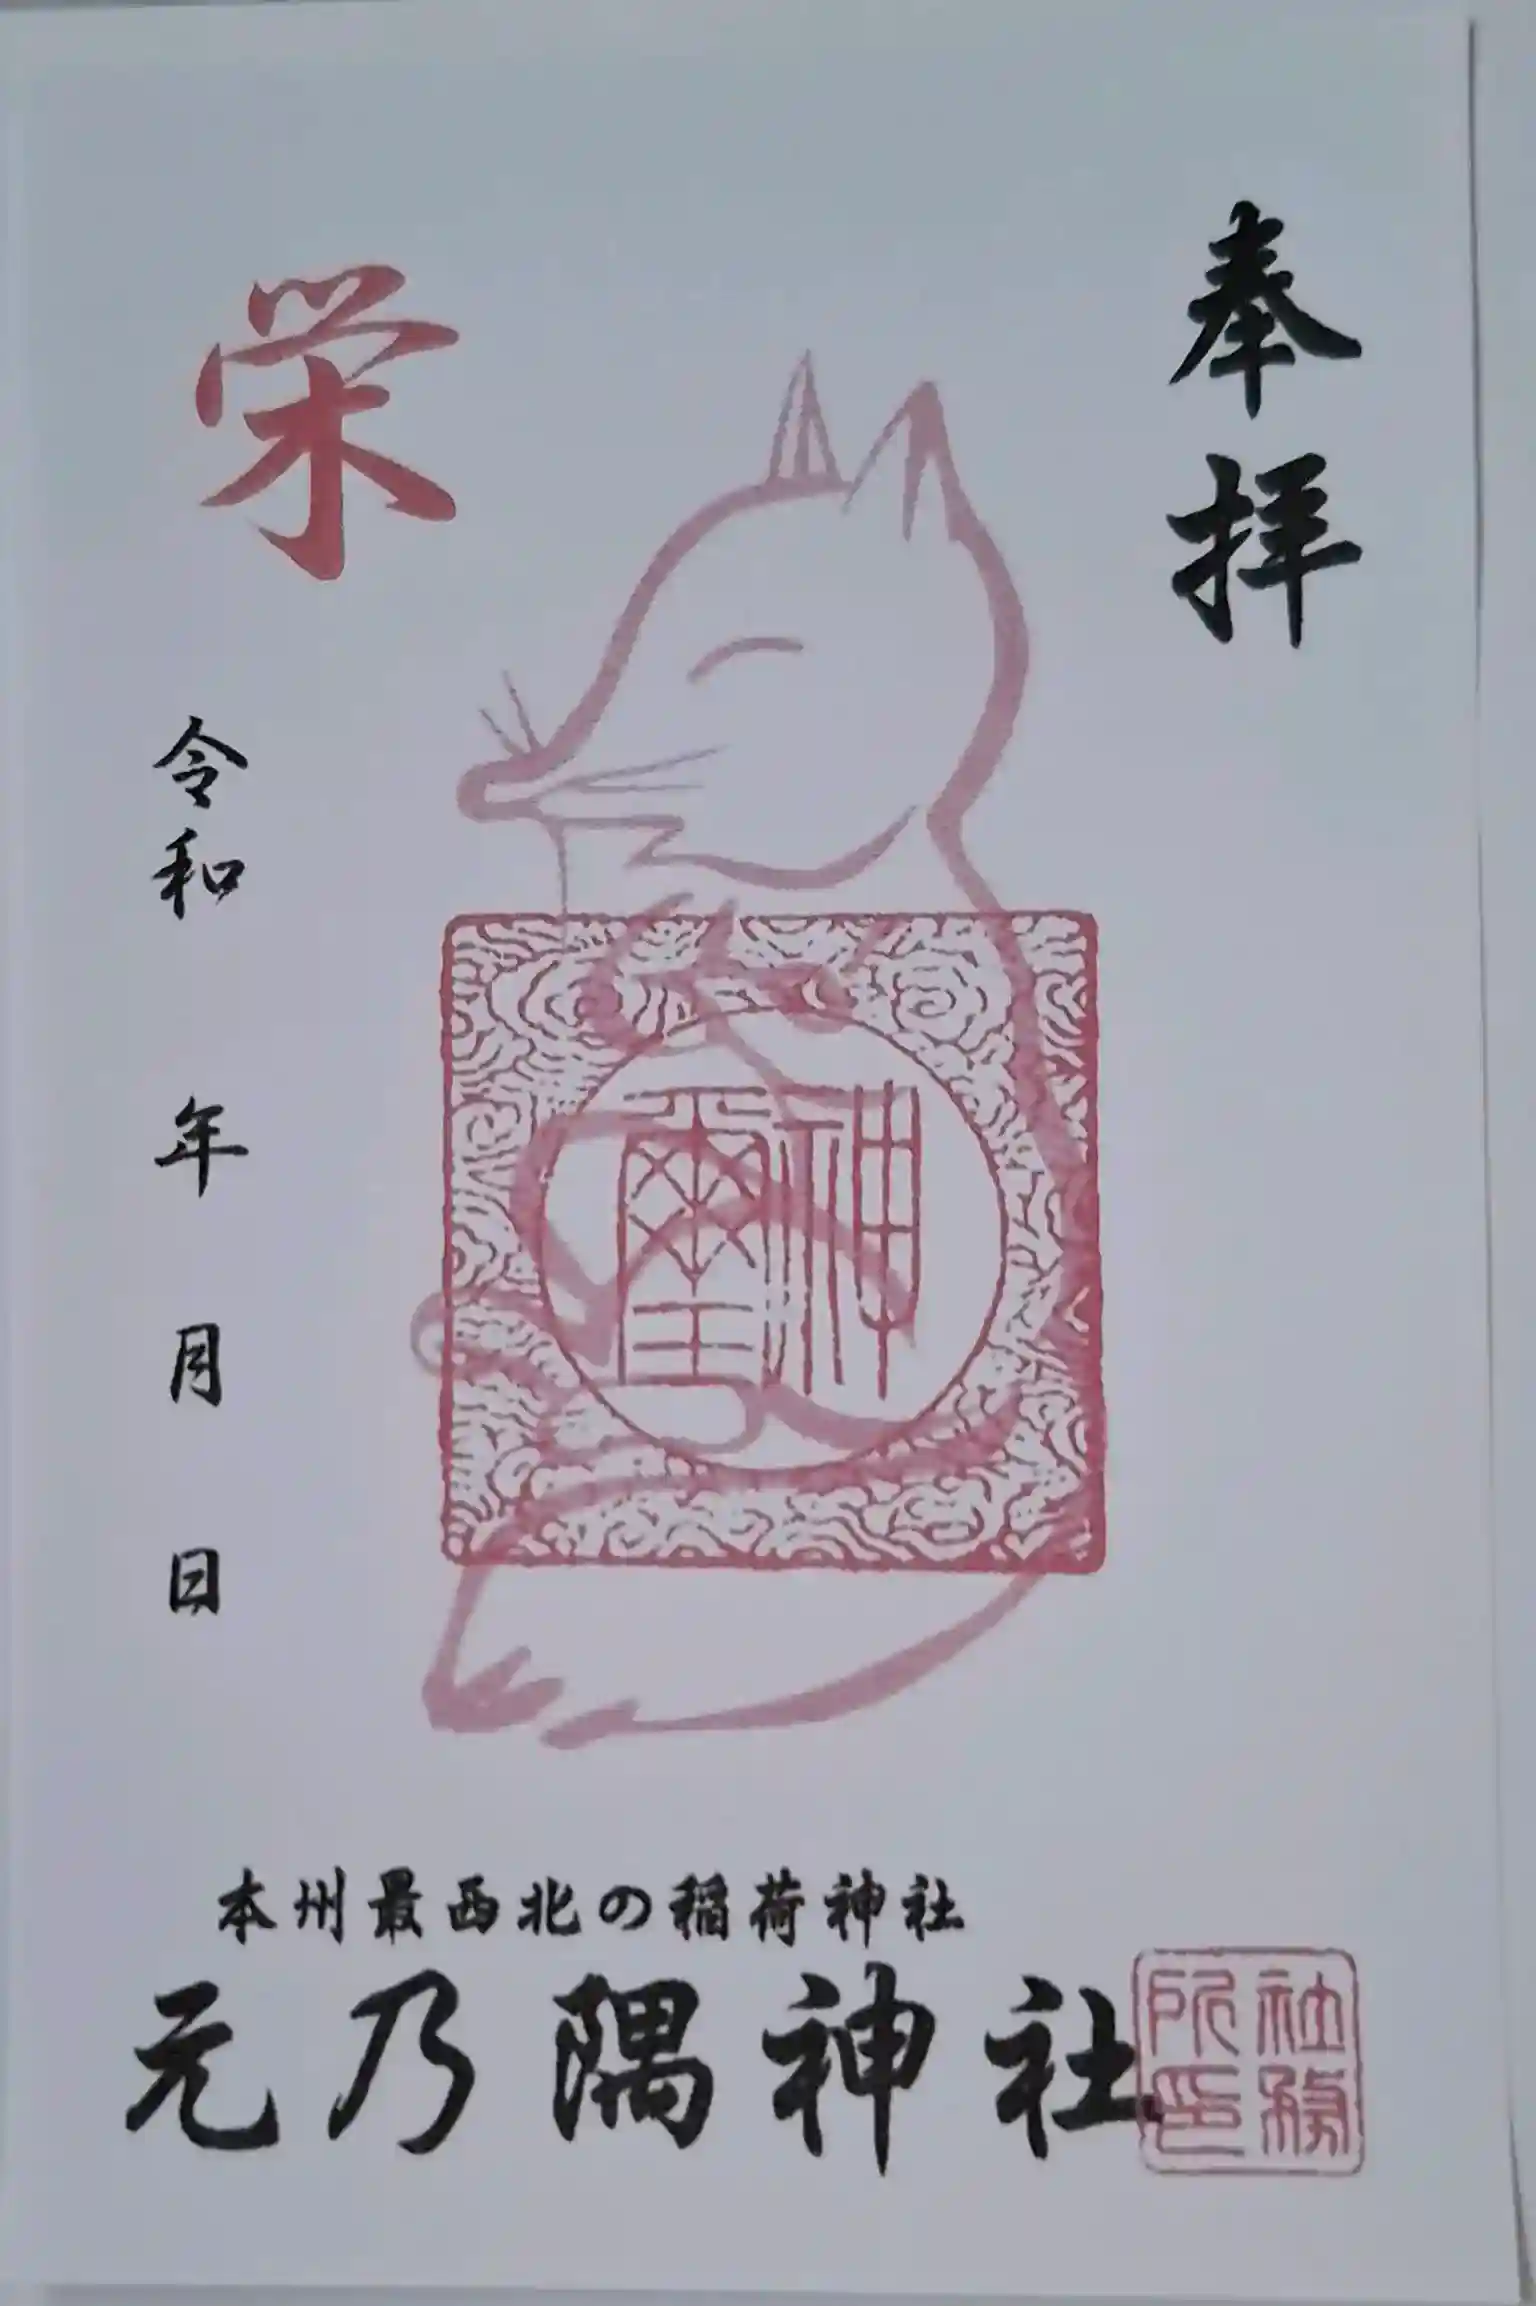 奉拝
栄
神璽
令和 年 月 日
本州最西北の稲荷神社
元乃隅神社
社務所印